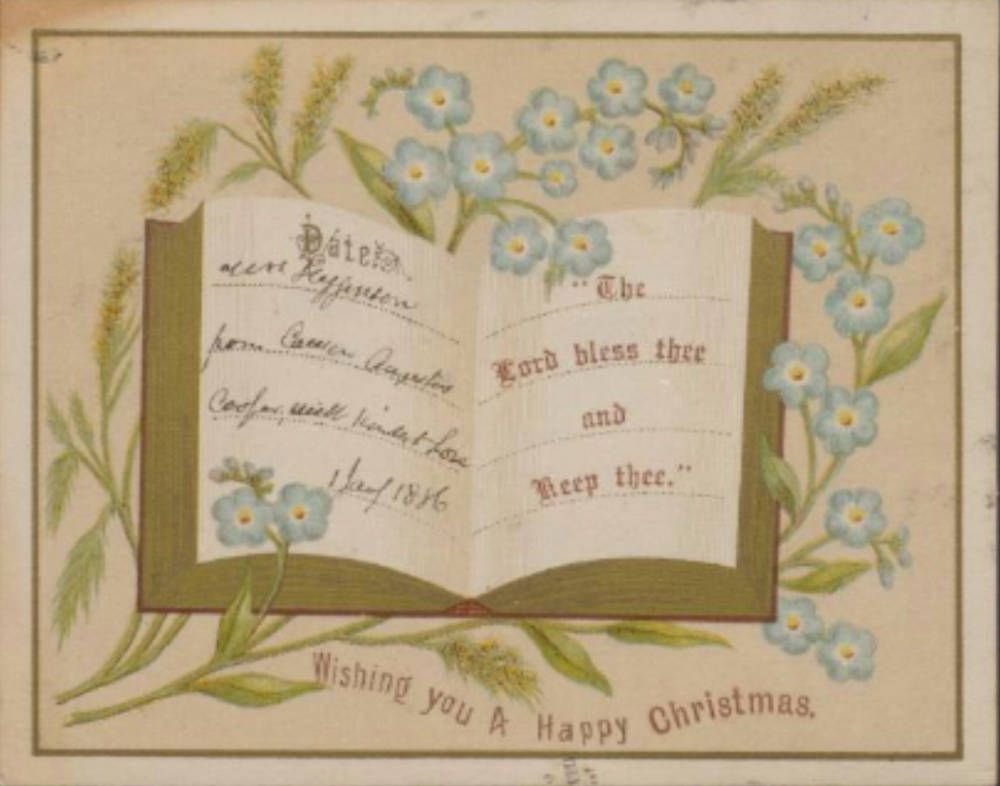 Date:
from Augustus
Cooper, with kindest love
1 Jany 1886
"The
Lord bless thee
and
Keep thee."
Wishing you A Happy Christmas.